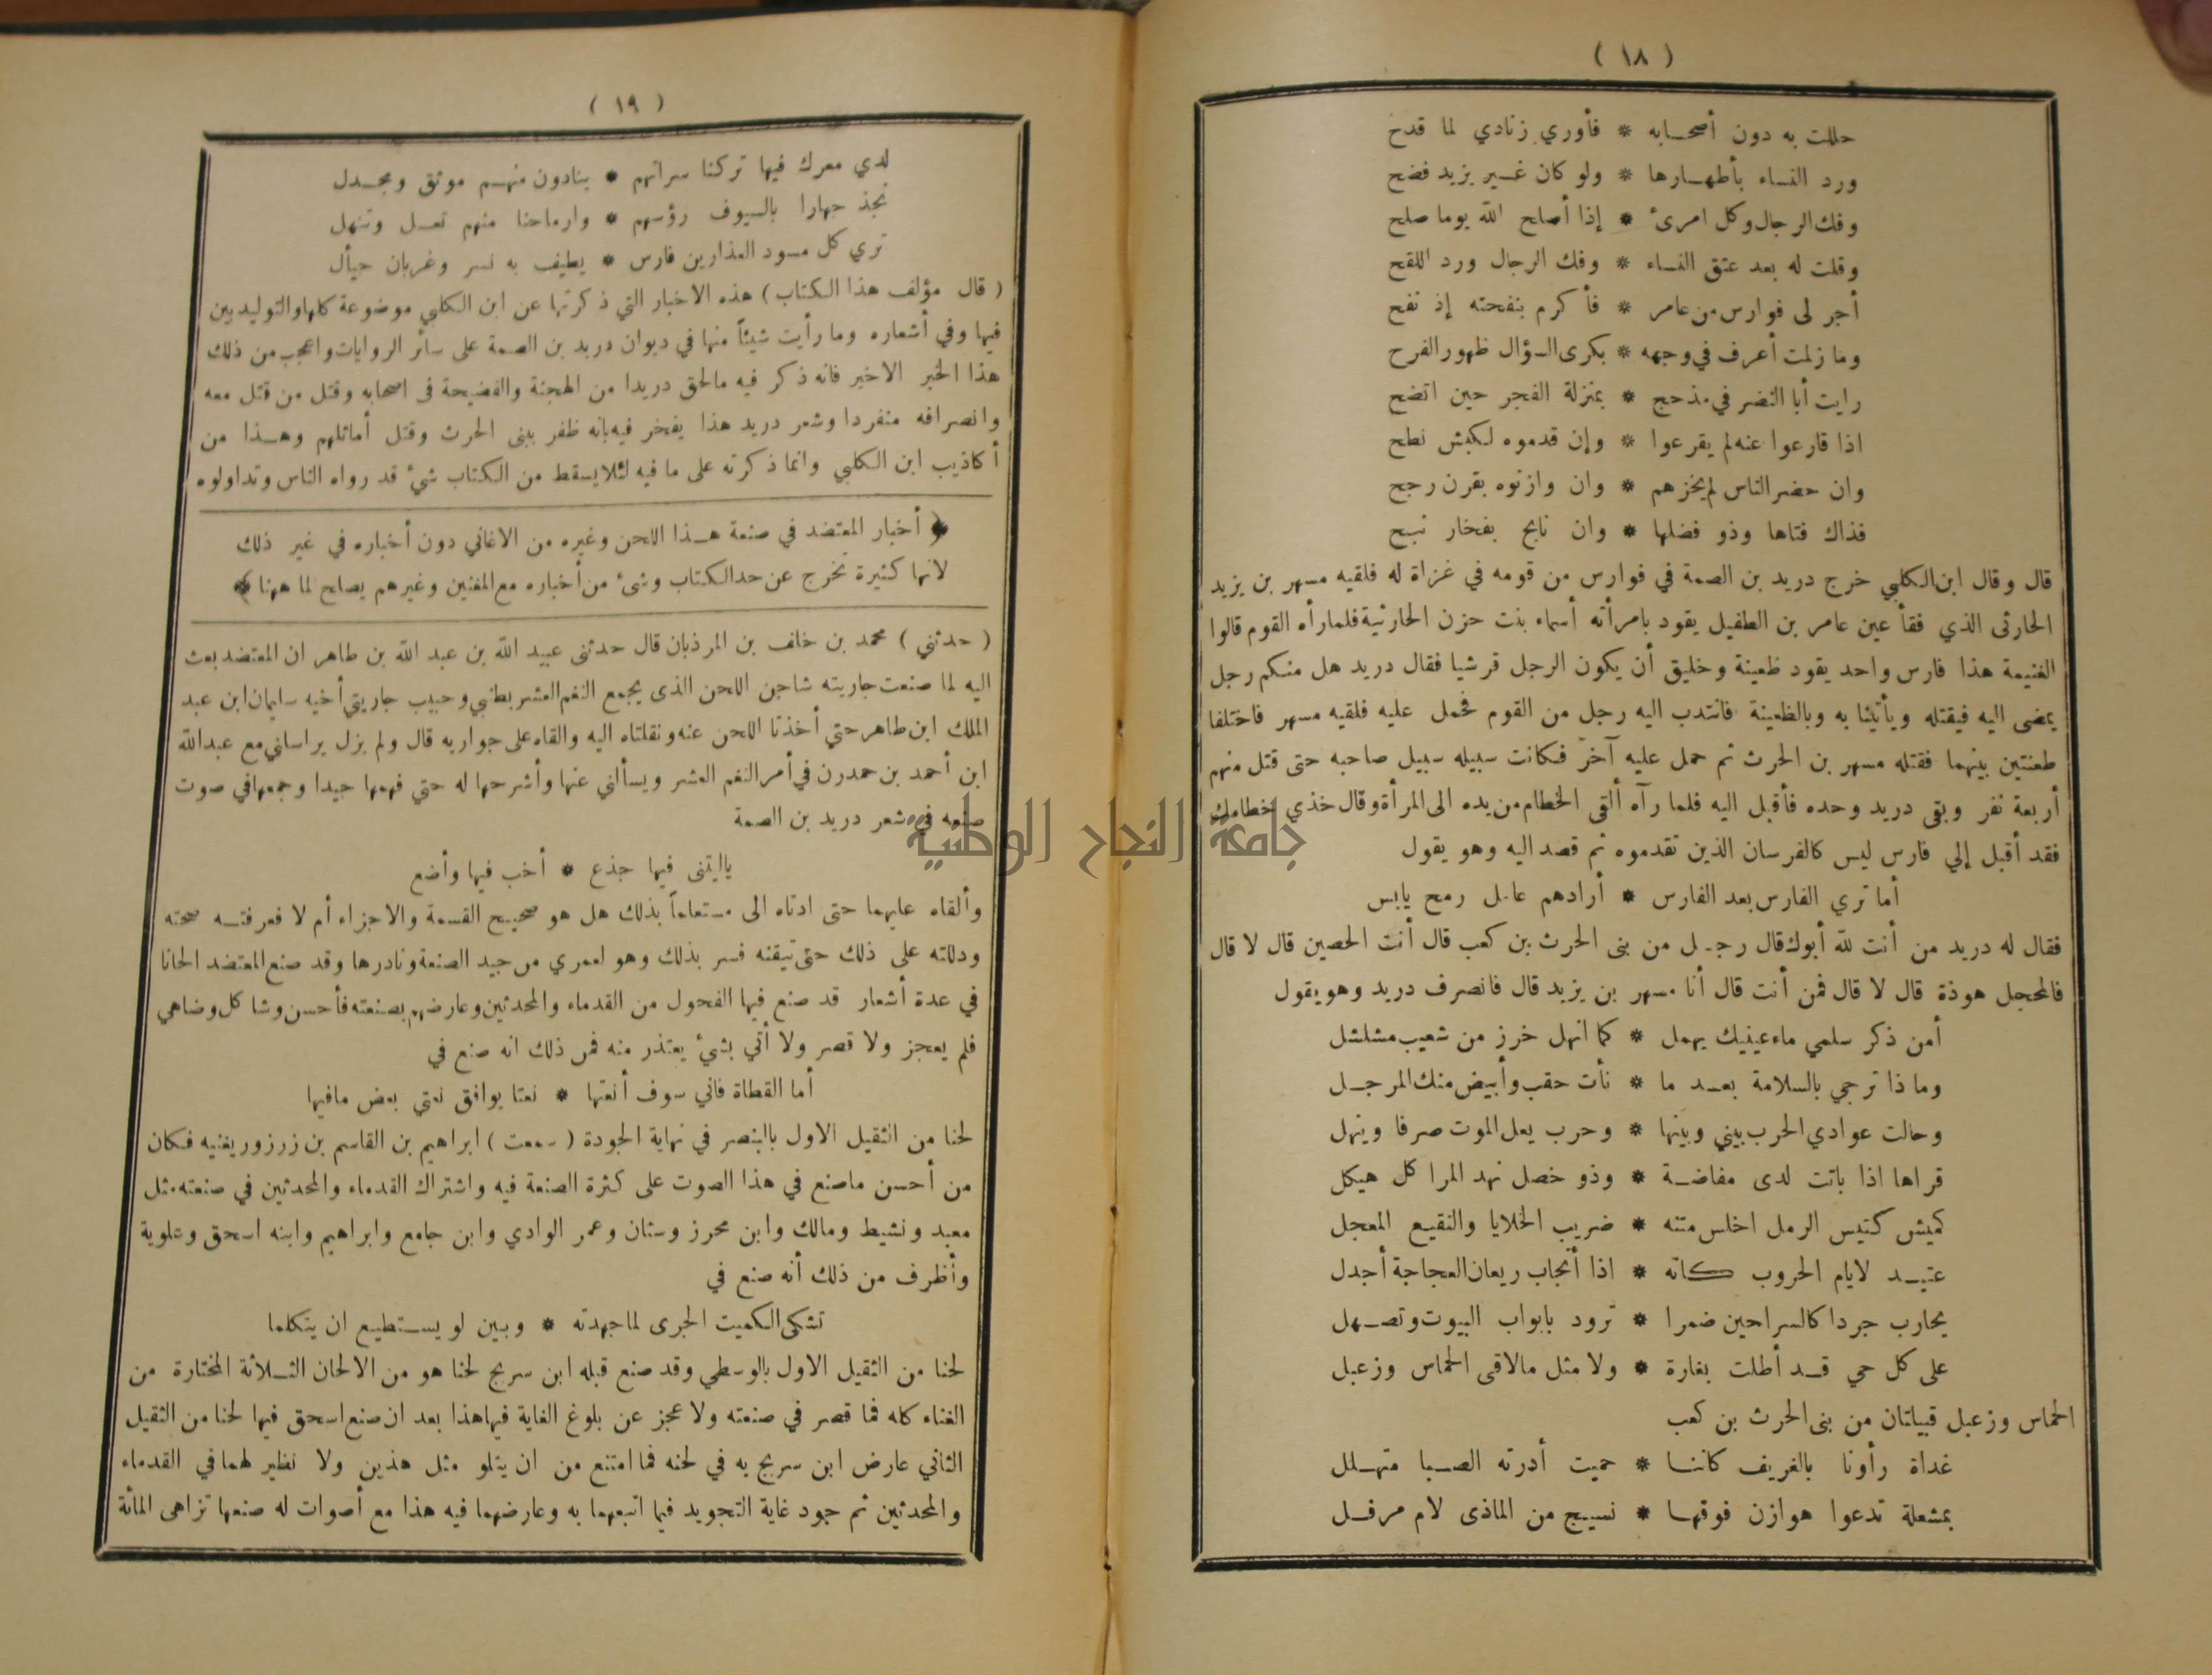 ( ١٨ )
حللت به دون أصحـابه * فأوري زنادي لما قدح
ورد النسـاء بأطهـارها * ولو كان غـير يزيد فضح
وفك الرجال وكل امرئ * إذا أصلح الله يوما صلح
وقلت له بعد عتق النساء * وفك الرجال ورد اللقح
أجر لى فوارس من عامر * فأكرم بنفحته إذ نفح
وما زلت أعرف في وجهه * بكرى السؤال ظهور الفرح
رايت أبا النضر في مذحج * بمنزلة الفجر حين اتضح
اذا قارعوا عنه لم يقرعوا * وإن قدموه لكبش نطح
وان حضر الناس لم يخزهم * وان وازنوه بقرن رجح
فذاك فتاها وذو فضلها * وان نابح بفخار نبح
قال وقال ابن الكلبي خرج دريد بن الصمة في فوارس من قومه في غزاة له فلقيه مسهر بن يزيد
الحارثى الذي فقأ عين عامر بن الطفيل يقود بامرأته أسماء بنت حزن الحارثية فلما رأه القوم قالوا
الغنيمة هذا فارس واحد يقود ظعينة وخليق أن يكون الرجل قرشيا فقال دريد هل منكم رجل
يمضى اليه فيقتله ويأتينا به وبالظعينة فانتدب اليه رجل من القوم فحمل عليه فلقيه مسهر فاختلفا
طعنتين بينهما فقتله مسهر بن الحرث ثم حمل عليه آخر فكانت سبيله سبيل صاحبه حتى قتل منهم
أربعة نفر وبقى دريد وحده فأقبل اليه فلما رآه ألقى الخطام من يده الى المرأة وقال خذي خطامك
فقد أقبل إلي فارس ليس كالفرسان الذين تقدموه ثم قصد اليه وهو يقول
أما تري الفارس بعد الفارس * أرادهم عامل رمح يابس
فقال له دريد من أنت لله أبوك قال رجـل من بنى الحرث بن كعب قال أنت الحصين قال لا قال
فالمحجل هوذة قال لا قال فمن أنت قال أنا مسهر بن يزيد قال فانصرف دريد وهو يقول
أمن ذكر سلمي ماء عينيك يهمل * كما انهل خرز من شعيب مشلشل
وماذا ترجي بالسلامة بعـد ما * نأت حقب وأبيض منك المرجـل
وحالت عوادي الحرب بيني وبينها * وحرب يعل الموت صرفا وينهل
قراها اذا باتت لدى مفاضـة * وذو خصل نهد المراكل هيكل
كميش كتيس الرمل اخلس متنه * ضريب الخلايا والنقيع المعجل
عتيـد لايام الحروب كانه * اذا أنجاب ريعان العجاجة أجدل
يحارب جردا كالسراحين ضمرا * ترود بابواب البيوت وتصـهل
على كل حي قـد أطلت بغارة * ولا مثل مالاقى الحماس وزعبل
الحماس وزعبل قبيلتان من بنى الحرث بن كعب
غداة رأونا بالغريف كاننـا * حميت أدرته الصـبا متهـلل
بمشعلة تدعوا هوازن فوقهـا * نسيج من الماذى لام مرفـل
( ١٩ )
لدي معرك فيها تركنا سراتهم * ينادون منهـم موثق ومجـدل
نجذ جهارا بالسيوف رؤسهم * وارماحنا منهم تعـل وتنهل
تري كل مسود العذارين فارس * يطيف به نسر وغربان جيأل
( قال مؤلف هذا الكتاب ) هذه الاخبار التي ذكرتها عن ابن الكلبي موضوعة كلها والتوليدبين
فيها وفي أشعاره وما رأيت شيئاً منها في ديوان دريد بن الصمة على سائر الروايات واعجب من ذلك
هذا الخبر الاخير فانه ذكر فيه مالحق دريدا من الهجنة والفضيحة فى اصحابه وقتل من قتل معه
وانصرافه منفردا وشعر دريد هذا يفخر فيه بانه ظفر ببنى الحرث وقتل أماثلهم وهـذا من
أكاذيب ابن الكلبي وانما ذكرته على ما فيه لئلا يسقط من الكتاب شيء قد رواه الناس وتداولوه
﴿ أخبار المعتضد في صنعة هـذا اللحن وغيره من الاغاني دون أخباره في غير ذلك
لانها كثيرة تخرج عن حد الكتاب وشئ من أخباره مع المغنين وغيرهم يصلح لما ههنا ﴾
( حدثني ) محمد بن خلف بن المرذبان قال حدثنى عبيد الله بن عبد الله بن طاهر ان المعتضد بعث
اليه لما صنعت جاريته شاجن اللحن الذى يجمع النغم العشر بطنبي وحبيب جاريتي أخيه سليمان ابن عبد
الملك ابن طاهر حتي أخذتا اللحن عنه ونقلتاه اليه والقاه على جواريه قال ولم يزل يراسلني مع عبد الله
ابن أحمد بن حمدرن في أمر النغم العشر ويسألني عنها وأشرحها له حتي فهمها جيدا وجمعها في صوت
صنعه في شعر دريد بن الصمة
ياليتنى فيها جذع * أخب فيها وأضع
وألقاه عليهما حتى ادتاه الى مستعلماً بذلك هل هو صحيح القسمة والاجزاء أم لا فعرفتـه صحته
ودللته على ذلك حتى تيقنه فسر بذلك وهو لعمري من جيد الصنعة ونادرها وقد صنع المعتضد الحانا
في عدة أشعار قد صنع فيها الفحول من القدماء والمحدثين وعارضهم بصنعته فأحسن وشاكل وضاهي
فلم يعجز ولا قصر ولا أتي بشئ يعتذر منه فمن ذلك انه صنع في
أما القطاة فاني سوف أنعتها * نعتا يوافق نعتي بعض مافيها
لحنا من الثقيل الاول بالبنصر في نهاية الجودة ( سمعت ) ابراهيم بن القاسم بن زرزور يغنيه فكان
من أحسن ماصنع في هذا الصوت على كثرة الصنعة فيه واشتراك القدماء والمحدثين في صنعته مثل
معبد ونشيط ومالك وابن محرز وسنان وعمر الوادي وابن جامع وابراهيم وابنه اسحق وعلوية
وأظرف من ذلك أنه صنع في
تشكى الكميت الجرى لما جهدته * وبين لو يسـتطيع ان يتكلما
لحنا من الثقيل الاول بالوسطي وقد صنع قبله ابن سريج لحنا هو من الالحان الثـلاثة المختارة من
الغناء كله فما قصر في صنعته ولا عجز عن بلوغ الغاية فيها هذا بعد ان صنع اسحق فيها لحنا من الثقيل
الثاني عارض ابن سريج به في لحنه فما امتنع من ان يتلو مثل هذين ولا نظير لهما في القدماء
والمحدثين ثم جود غاية التجويد فيما اتبعهما به وعارضهما فيه هذا مع أصوات له صنعها تزاهى المائة
جامعة النجاح الوطنية